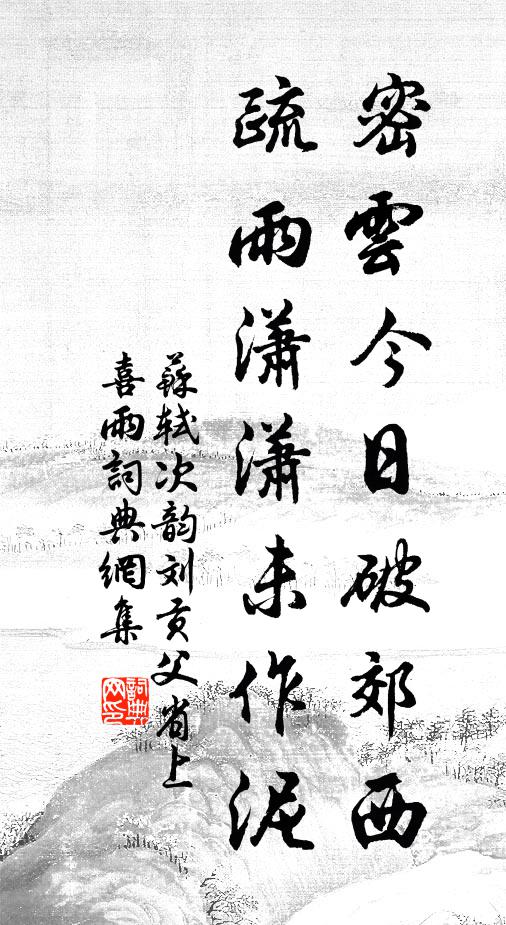 密雲今日破郊西
疏雨瀟瀟未作泥
蘇軾次韵刘贡父省上
喜雨詞典網集
詞典网印